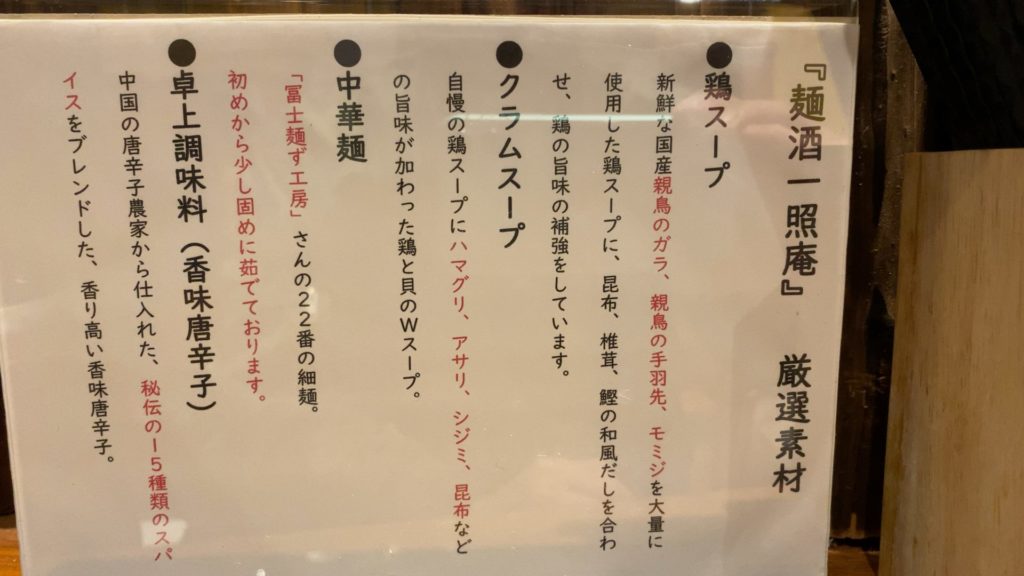 『麺酒一照庵』 厳選素材
●鶏スープ
新鮮な国産親鳥のガラ、親鳥の手羽先、モミジを大量に
使用した鶏スープに、昆布、椎茸、鰹の和風だしを合わ
せ、鶏の旨味の補強をしています。
●クラムスープ
自慢の鶏スープにハマグリ、アサリ、シジミ、昆布など
の旨味が加わった鶏と貝のWスープ。
●中華麺
「冨士麺ず工房」さんの22番の細麺。
初めから少し固めに茹でております。
●卓上調味料（香味唐辛子）
中国の唐辛子農家から仕入れた、秘伝の15種類のスパ
イスをブレンドした、香り高い香味唐辛子。